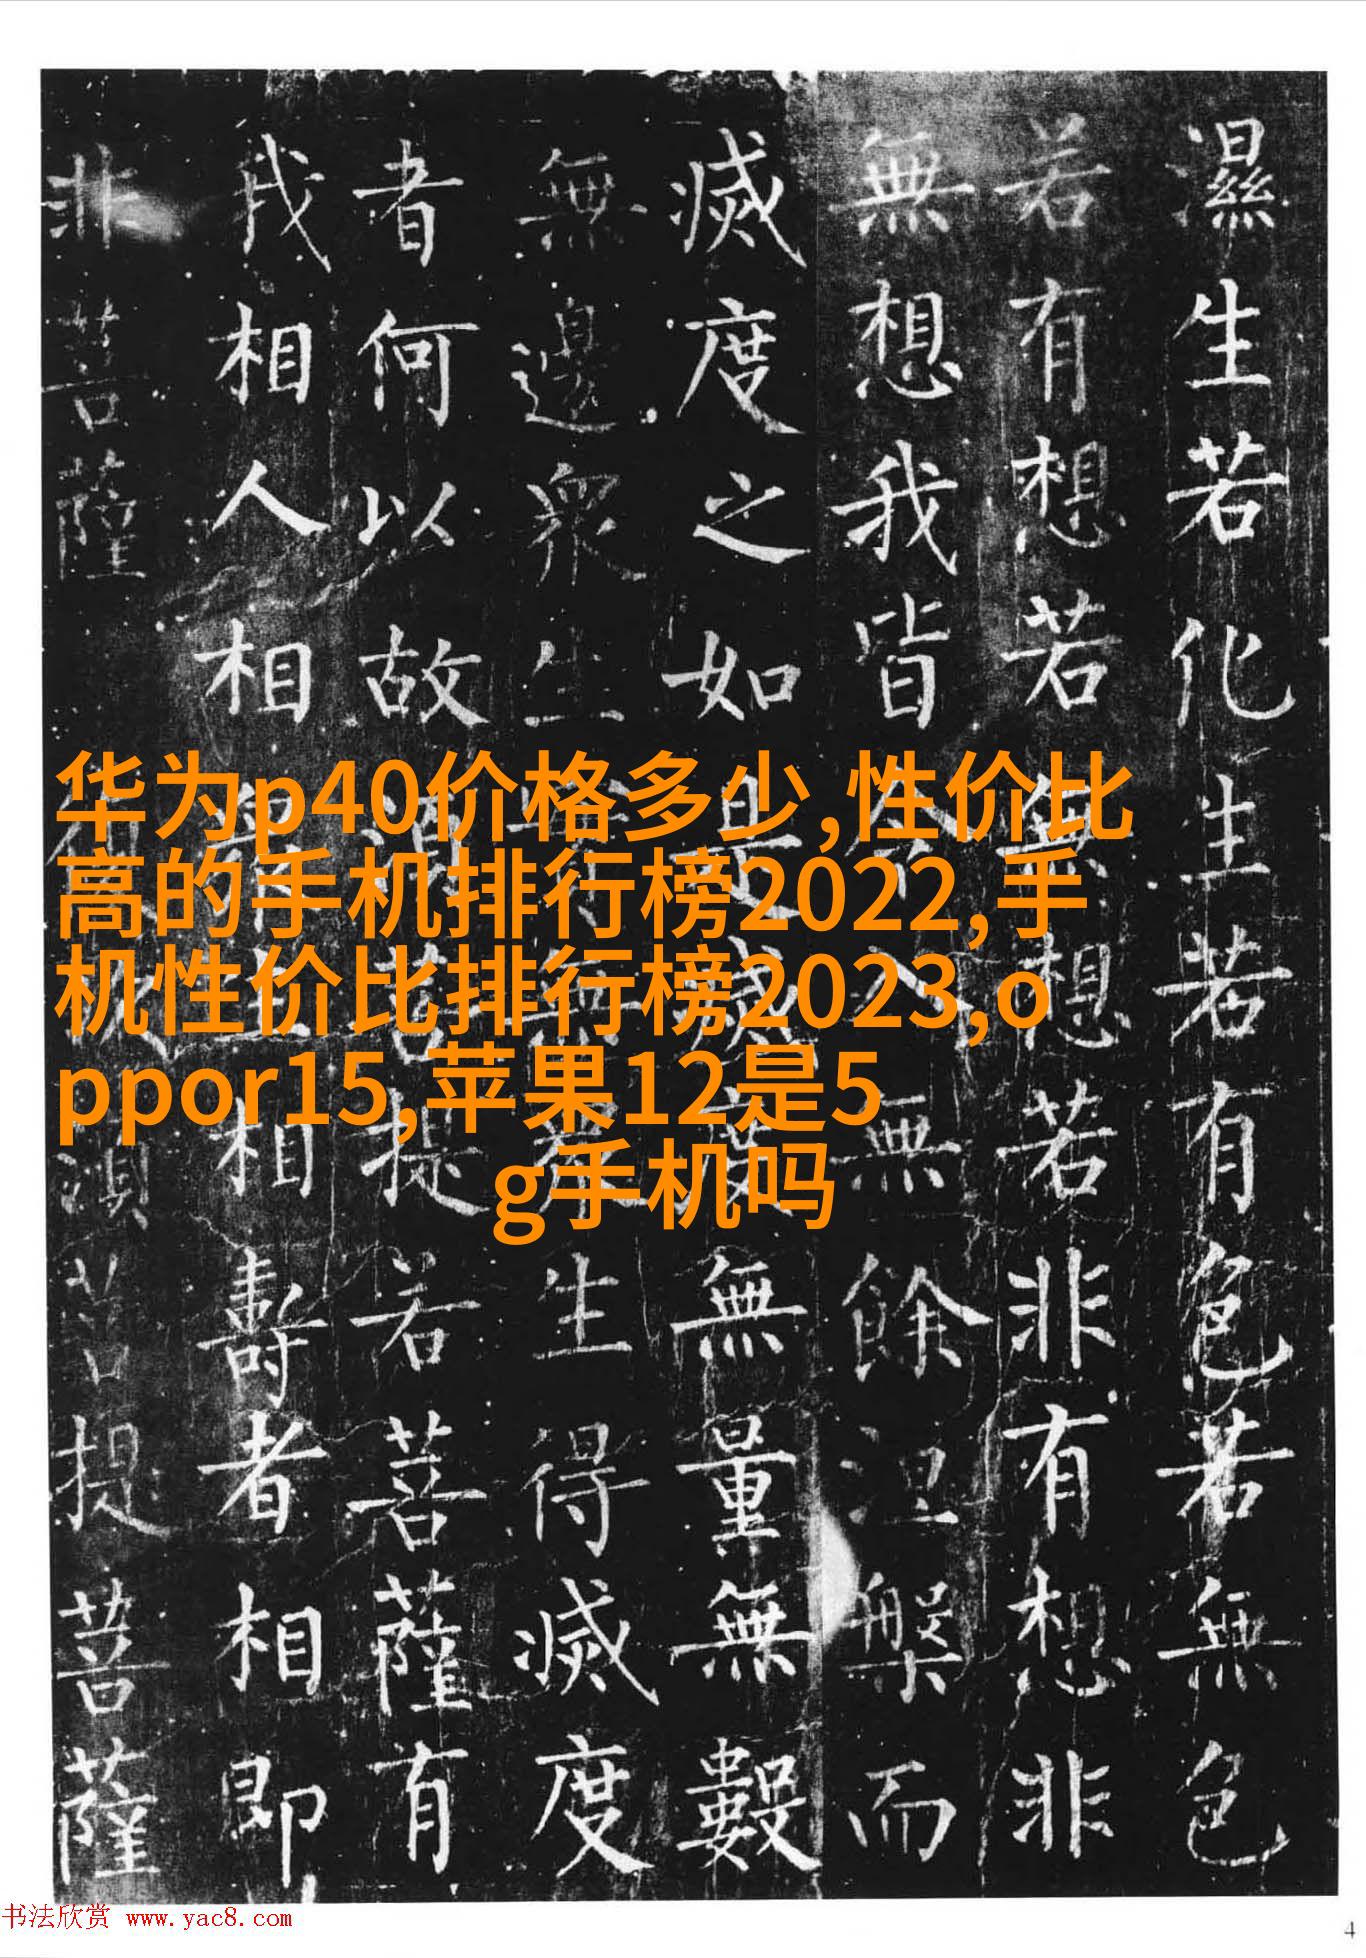 濕生若化生若有色若無色
若有想若無想若非有想非
無想我皆令入無餘涅槃而
滅度之如是滅度無量無數
無邊眾生實無眾生得滅度
者何以故須菩提若菩薩有
我相人相眾生相壽者相即
非菩薩 復次須菩提菩薩
华为p40价格多少,性价比
高的手机排行榜2022,手
机性价比排行榜2023,o
ppor15,苹果12是5
g手机吗
书法欣赏 www.yac8.com
4